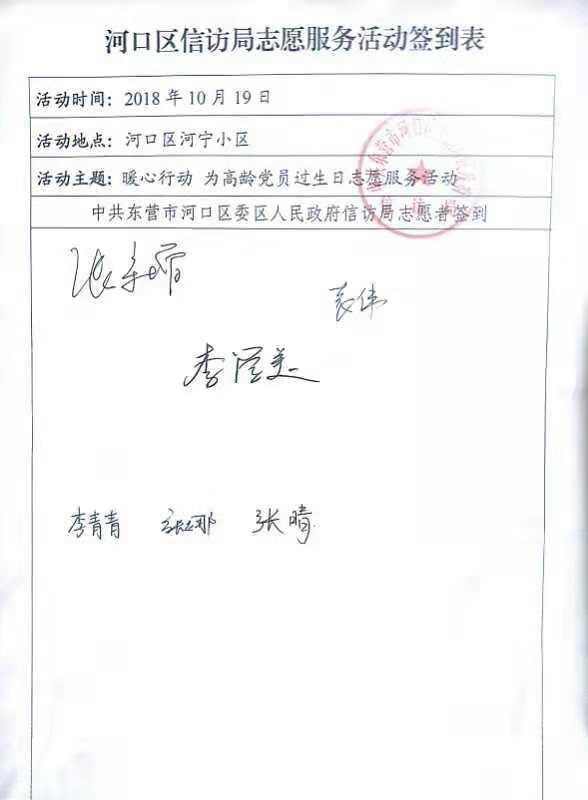 河口区信访局志愿服务活动签到表
活动时间：2018年10月19日
活动地点：河口区河宁小区
活动主题：暖心行动 为高龄党员过生日志愿服务活动
中共东营市河口区委区人民政府信访局志愿者签到
袁伟
李青青 张娜 张晴